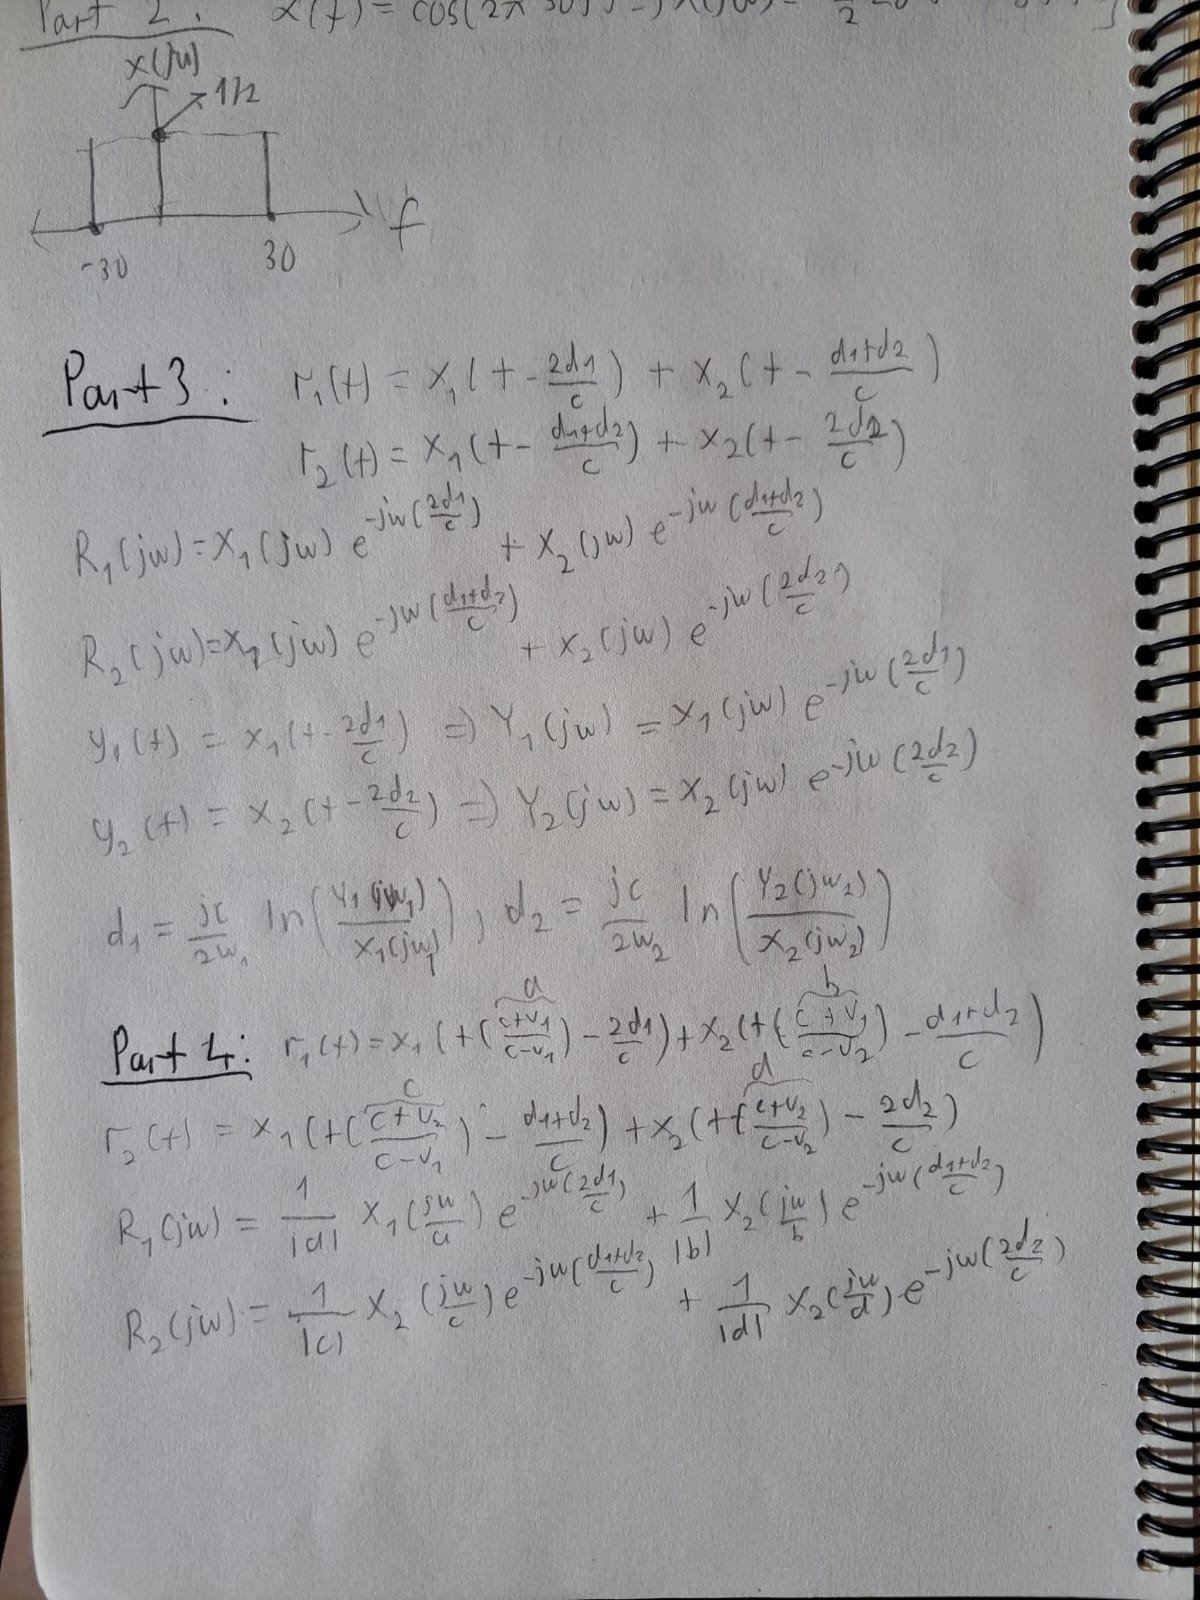 Part 2: x(t) = cos(2π 30
x(jw)
1/2
f
-30 30
Part 3: r₁(t) = x₁(t - 2d1/c) + x₂(t - d1+d2/c)
r₂(t) = x₁(t - d1+d2/c) + x₂(t - 2d2/c)
R₁(jw) = X₁(jw) e^-jw(2d1/c) + X₂(jw) e^-jw(d1+d2/c)
R₂(jw) = X₁(jw) e^-jw(d1+d2/c) + X₂(jw) e^-jw(2d2/c)
y₁(t) = x₁(t - 2d1/c) => Y₁(jw) = X₁(jw) e^-jw(2d1/c)
y₂(t) = x₂(t - 2d2/c) => Y₂(jw) = X₂(jw) e^-jw(2d2/c)
d₁ = jc/2w₁ ln(Y₁(jw₁)/X₁(jw₁)), d₂ = jc/2w₂ ln(Y₂(jw₂)/X₂(jw₂))
a b
Part 4: r₁(t) = x₁(t(c+v₁/c-v₁) - 2d1/c) + x₂(t(c+v₁/c-v₂) - d1+d2/c)
c d
r₂(t) = x₁(t(c+v₂/c-v₁) - d1+d2/c) + x₂(t(c+v₂/c-v₂) - 2d2/c)
R₁(jw) = 1/|a| X₁(jw/a) e^-jw(2d1/c) + 1/|b| X₂(jw/b) e^-jw(d1+d2/c)
R₂(jw) = 1/|c| X₂(jw/c) e^-jw(d1+d2/c) + 1/|d| X₂(jw/d) e^-jw(2d2/c)